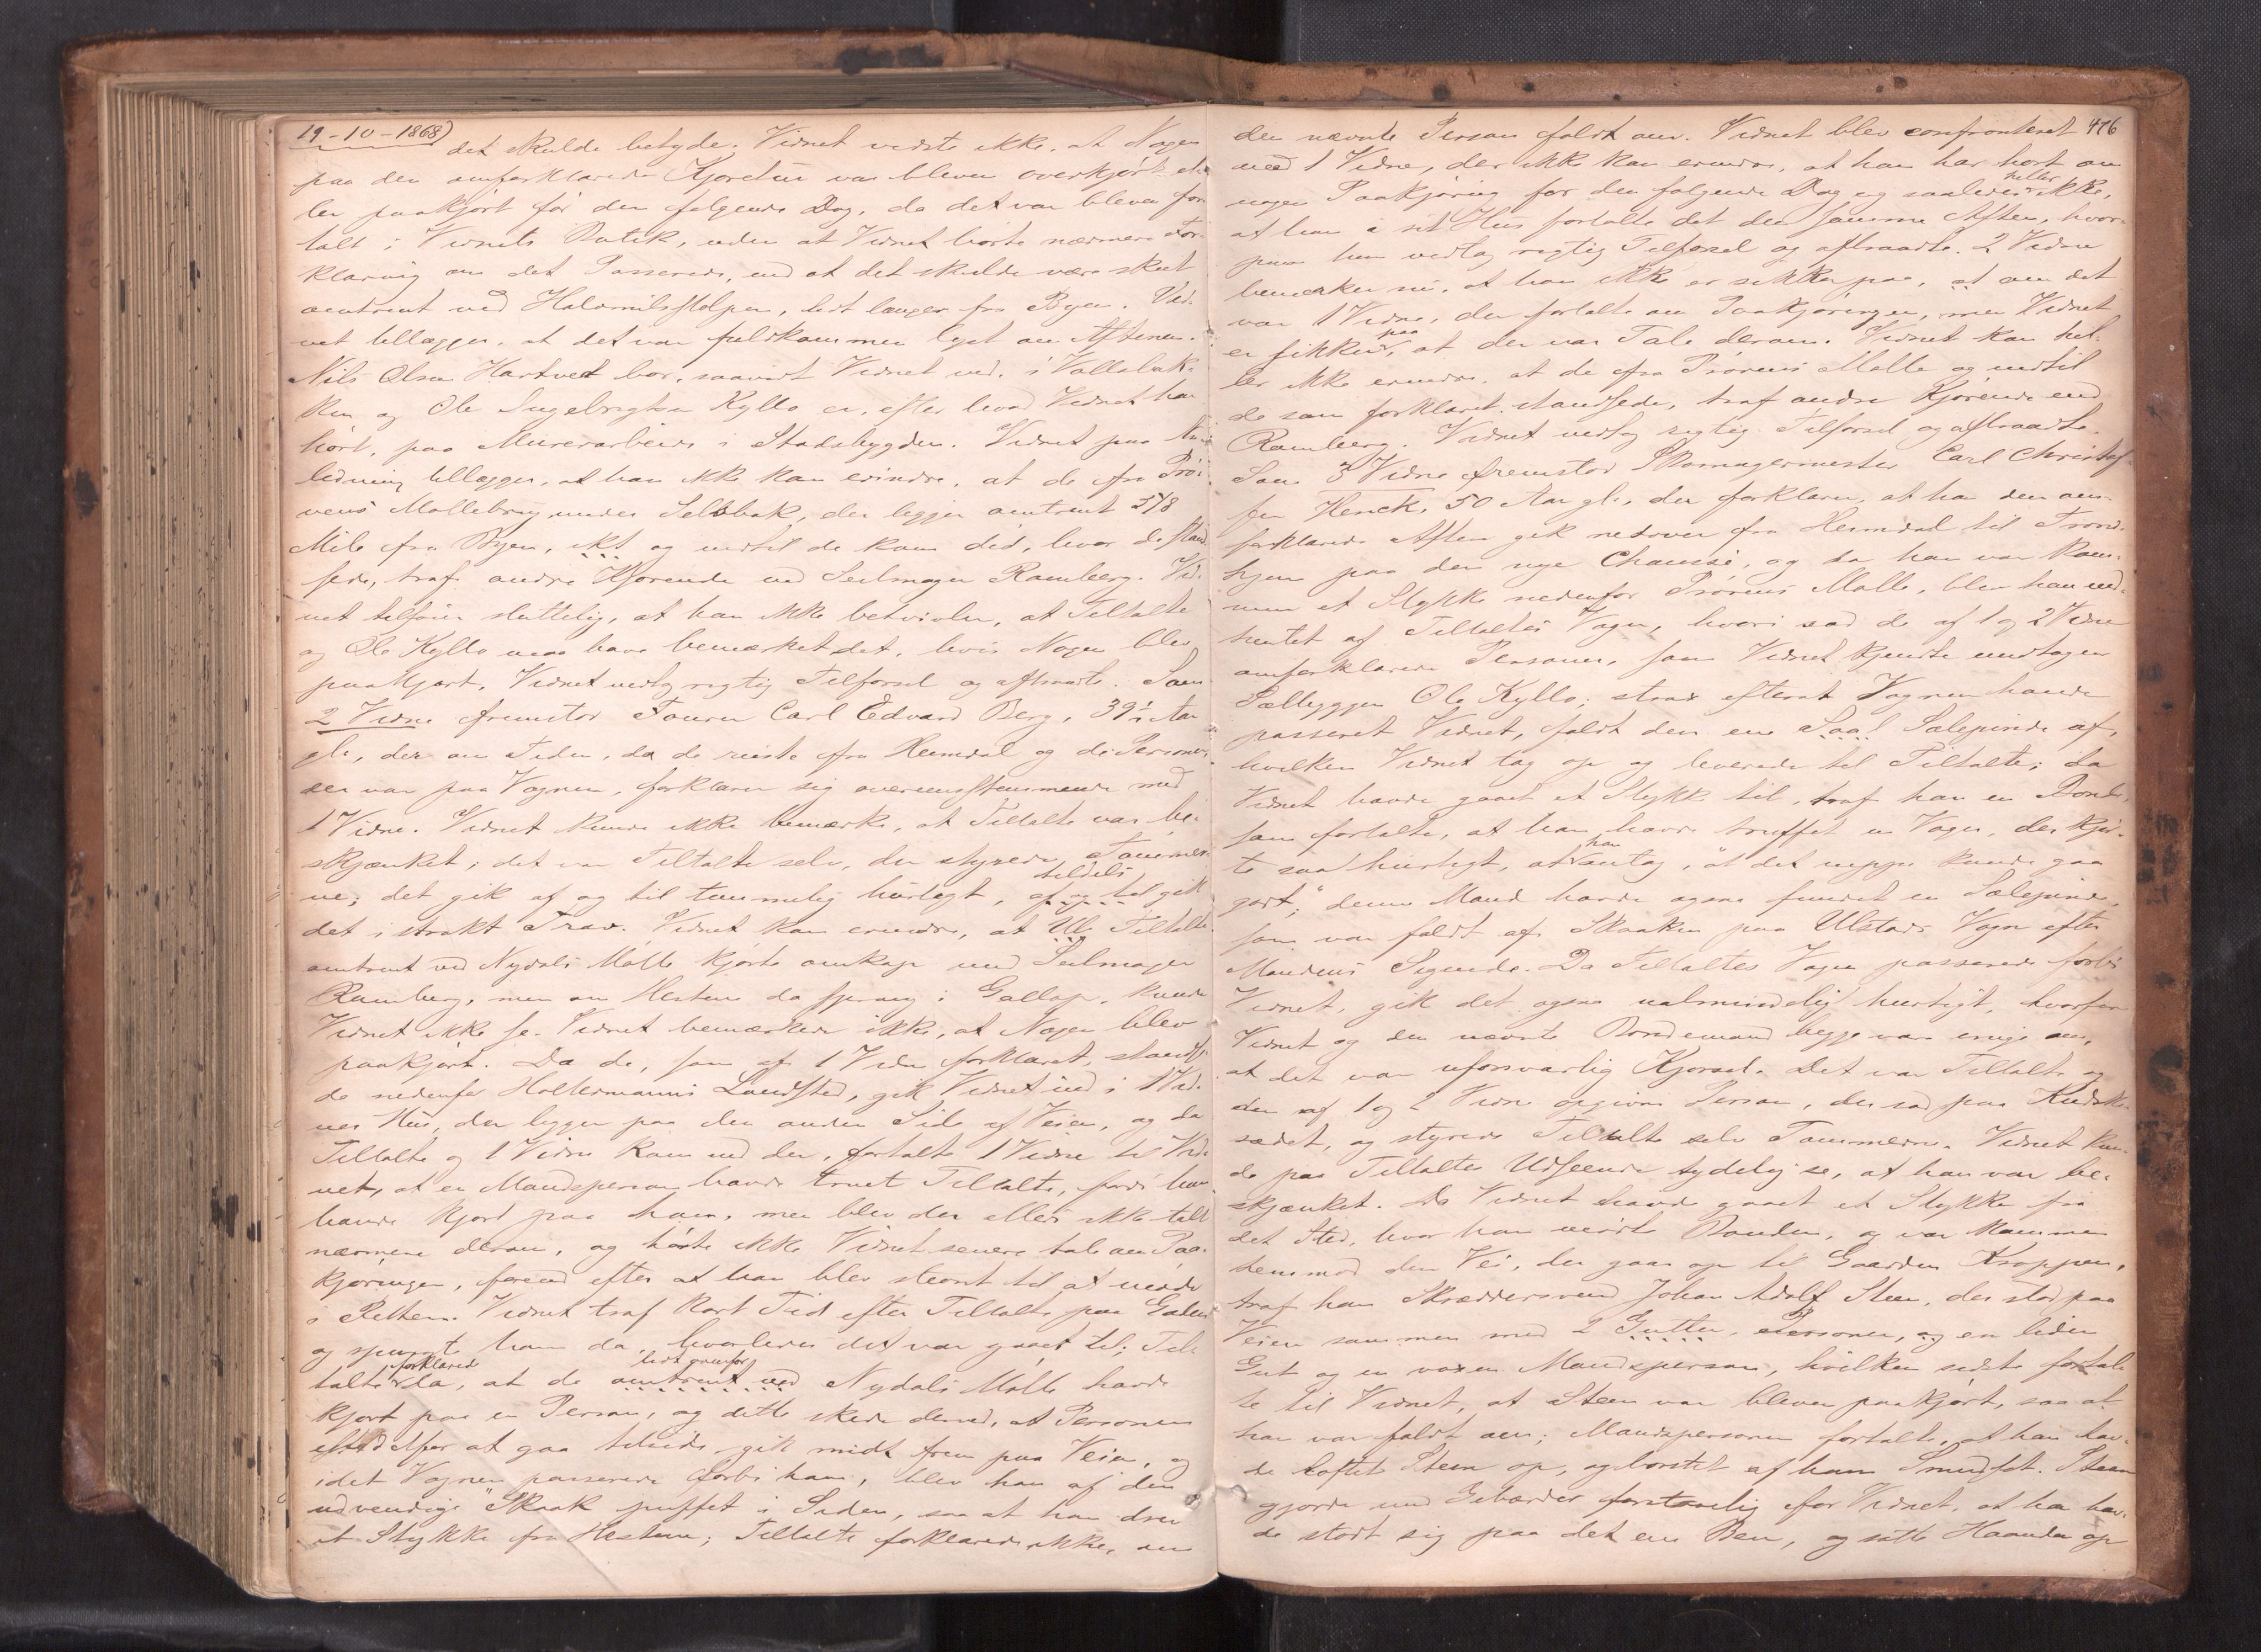 19-10-1868)
det skulde betyde. Vidnet vidste ikke, at Nogen
paa den omforklarede Kjøretur var bleven overkjørt el-
ler paakjørt før den følgende Dag, da det var bleven for
talt i Vidnets Butik, uden at Vidnet hørte nærmere For
klaring om det Passerede, end at det skulde være skeet
omtrent ved Halvmilsstolpen, lidt længer fra Byen. Vid-
net tillægger, at det var fuldkommen lyst om Aftenen.
Nils Olsen Hartvet bor, saavidt Vidnet ved, i Vollabak-
ken og Ole Ingebrigtsen Kyllo er, efter hvad Vidnet har
hørt, paa Murerarbeide i Stadsbygden. Vidnet paa An-
ledning tillægger, at han ikke kan erindre, at de fra Prø-
vens Møllebrug under Selsbak, der ligger omtrent 5/8
Mile fra Byen, ikt og indtil de kom did, hvor de stand
sede, traf andre Kjørende end Seilmager Ramberg. Vid-
net tilføier sluttelig, at han ikke betvivler, at Tiltalte
og Ole Kyllo maa have bemærket det, hvis Nogen blev
paakjørt. Vidnet vedtog rigtig Tilførsel og aftraadte. Som
2 Vidne fremstod Tourer Carl Edvard Berg, 39 1/2 Aar
gl., der om Tiden, da de reiste fra Heimdal og de Personer
der var paa Vognen, forklarer sig overensstemmende med
1 Vidne. Vidnet kunde ikke bemærke, at Tiltalte var be-
skjænket; det var Tiltalte selv, der styrede Tømmer-
ne; det gik af og til temmelig hurtigt, af og til gik
tildels
det i strakt Trav. Vidnet kan erindre, at Ul. Tiltalte
omtrent ved Nydals Mølle kjørte omkap med Seilmager
Ramberg, men om Hestene da sprang i Gallop, kunde
Vidnet ikke se. Vidnet bemærkede ikke, at Nogen blev
paakjørt. Da de, som af 1 Vidne forklaret, standse
de nedenfor Holtermanns Landsted, gik Vidnet ind i 1 Vid-
nes Hus, der ligger paa den anden Side af Veien, og da
Tiltalte og 1 Vidne kom ind der, fortalte 1 Vidne til Vid-
net, at en Mandsperson havde truet Tiltalte, fordi han
havde kjørt paa ham, men blev der ellers ikke talt
nærmere derom, og hørte ikke Vidnet senere tale om Paa-
kjøringen, førend efter at han blev stevnt til at møde
i Retten. Vidnet traf kort Tid efter Tiltalte paa Gaden
og spurgte ham da, hvorledes det var gaaet til; Til-
talte forklarede da, at de omtrent ved lidt ovenfor Nydals Mølle havde
kjørt paa en Person, og dette skede derved, at Personen
istedetfor at gaa tilside gik midt frem paa Veien, og
idet Vognen passerede forbi ham, blev han af den
udvendige Skaak puffet i Siden, saa at han drev
et Stykke fra Hesten; Tiltalte forklarede ikke, om
476
den nævnte Person faldt om. Vidnet blev confronteret
med 1 Vidne, der ikke kan erindre, at han har hørt om
nogen Paakjøring før den følgende Dag og saaledes heller ikke,
at han i sit Hus fortalte det den samme Aften, hvor-
paa han vedtog rigtig Tilførsel og aftraadte. 2 Vidne
bemærker nu, at han ikke er sikker paa, at om det
var 1 Vidne, der fortalte om Paakjøringen, men Vidnet
er sikker paa, at der var Tale derom. Vidnet kan hel-
ler ikke erindre, at de fra Prøvens Mølle og indtil
de som forklaret standsede, traf andre Kjørende end
Ramberg. Vidnet vedtog rigtig Tilførsel og aftraadte.
Som 3 Vidne fremstod Skomagermester Carl Christof-
fer Henck, 50 Aar gl., der forklarer, at han den om-
forklarede Aften gik nedover fra Heimdal til Trond-
hjem paa den nye Chaussé, og da han var kom-
men et Stykke nedenfor Prøvens Mølle, blev han ind-
hentet af Tiltaltes Vogn, hvori sad de af 1 og 2 Vidne
omforklarede Personer, som Vidnet kjendte undtagen
Pælbygger Ole Kyllo; strax efterat Vognen havde
passeret Vidnet, faldt den ene Saal Sælepinde af,
hvilken Vidnet tog op og leverede til Tiltalte; da
Vidnet havde gaaet et Stykke til, traf han en Bonde,
som fortalte, at han havde truffet en Vogn, der kjør-
te saa hurtigt, at han antog, "at det neppe kunde gaa
godt"; denne Mand havde ogsaa fundet en Sælepinde,
som var faldt af Skaaken paa Ulstads Vogn efter
Mandens Sigende. Da Tiltaltes Vogn passerede forbi
Vidnet, gik det ogsaa ualmindelig hurtigt, hvorfor
Vidnet og den nævnte Bondemand begge var enige om,
at det var uforsvarlig Kjørsel. Det var Tiltalte og
den af 1 og 2 Vidne opgivne Person, der sad paa Kudske-
sædet, og styrede Tiltalte selv Tømmerne. Vidnet kun-
de paa Tiltaltes Udseende tydelig se, at han var be-
skjænket. Da Vidnet havde gaaet et Stykke fra
det Sted, hvor han mødte Bonden, og var kommen
henimod den Vei, der gaar op til Gaarden Kroppan,
traf han Skræddersvend Johan Adolf Steen, der stod paa
Veien sammen med 2 Gutter, Personer, og en liden
Gut og en voxen Mandsperson, hvilken sidste fortal-
te til Vidnet, at Steen var bleven paakjørt, saa at
han var faldt om; Mandspersonen fortalte, at han hav-
de løftet Steen op, og børstet af ham Smudset. Steen
gjorde med Gebærder forstaaelig for Vidnet, at han hav-
de stødt sig paa det ene Ben, og satte Haanden op